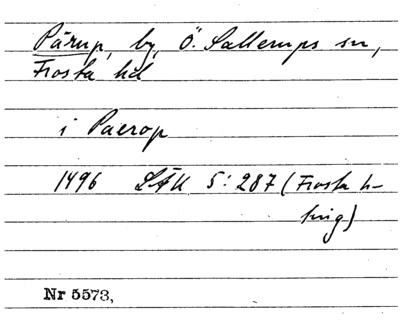 Pärup, by, Ö. Sallerups sn,
Frosta hd
i Paerop
1496 LÄU 5: 287 (Frosta h-
ting)
Nr 5573,